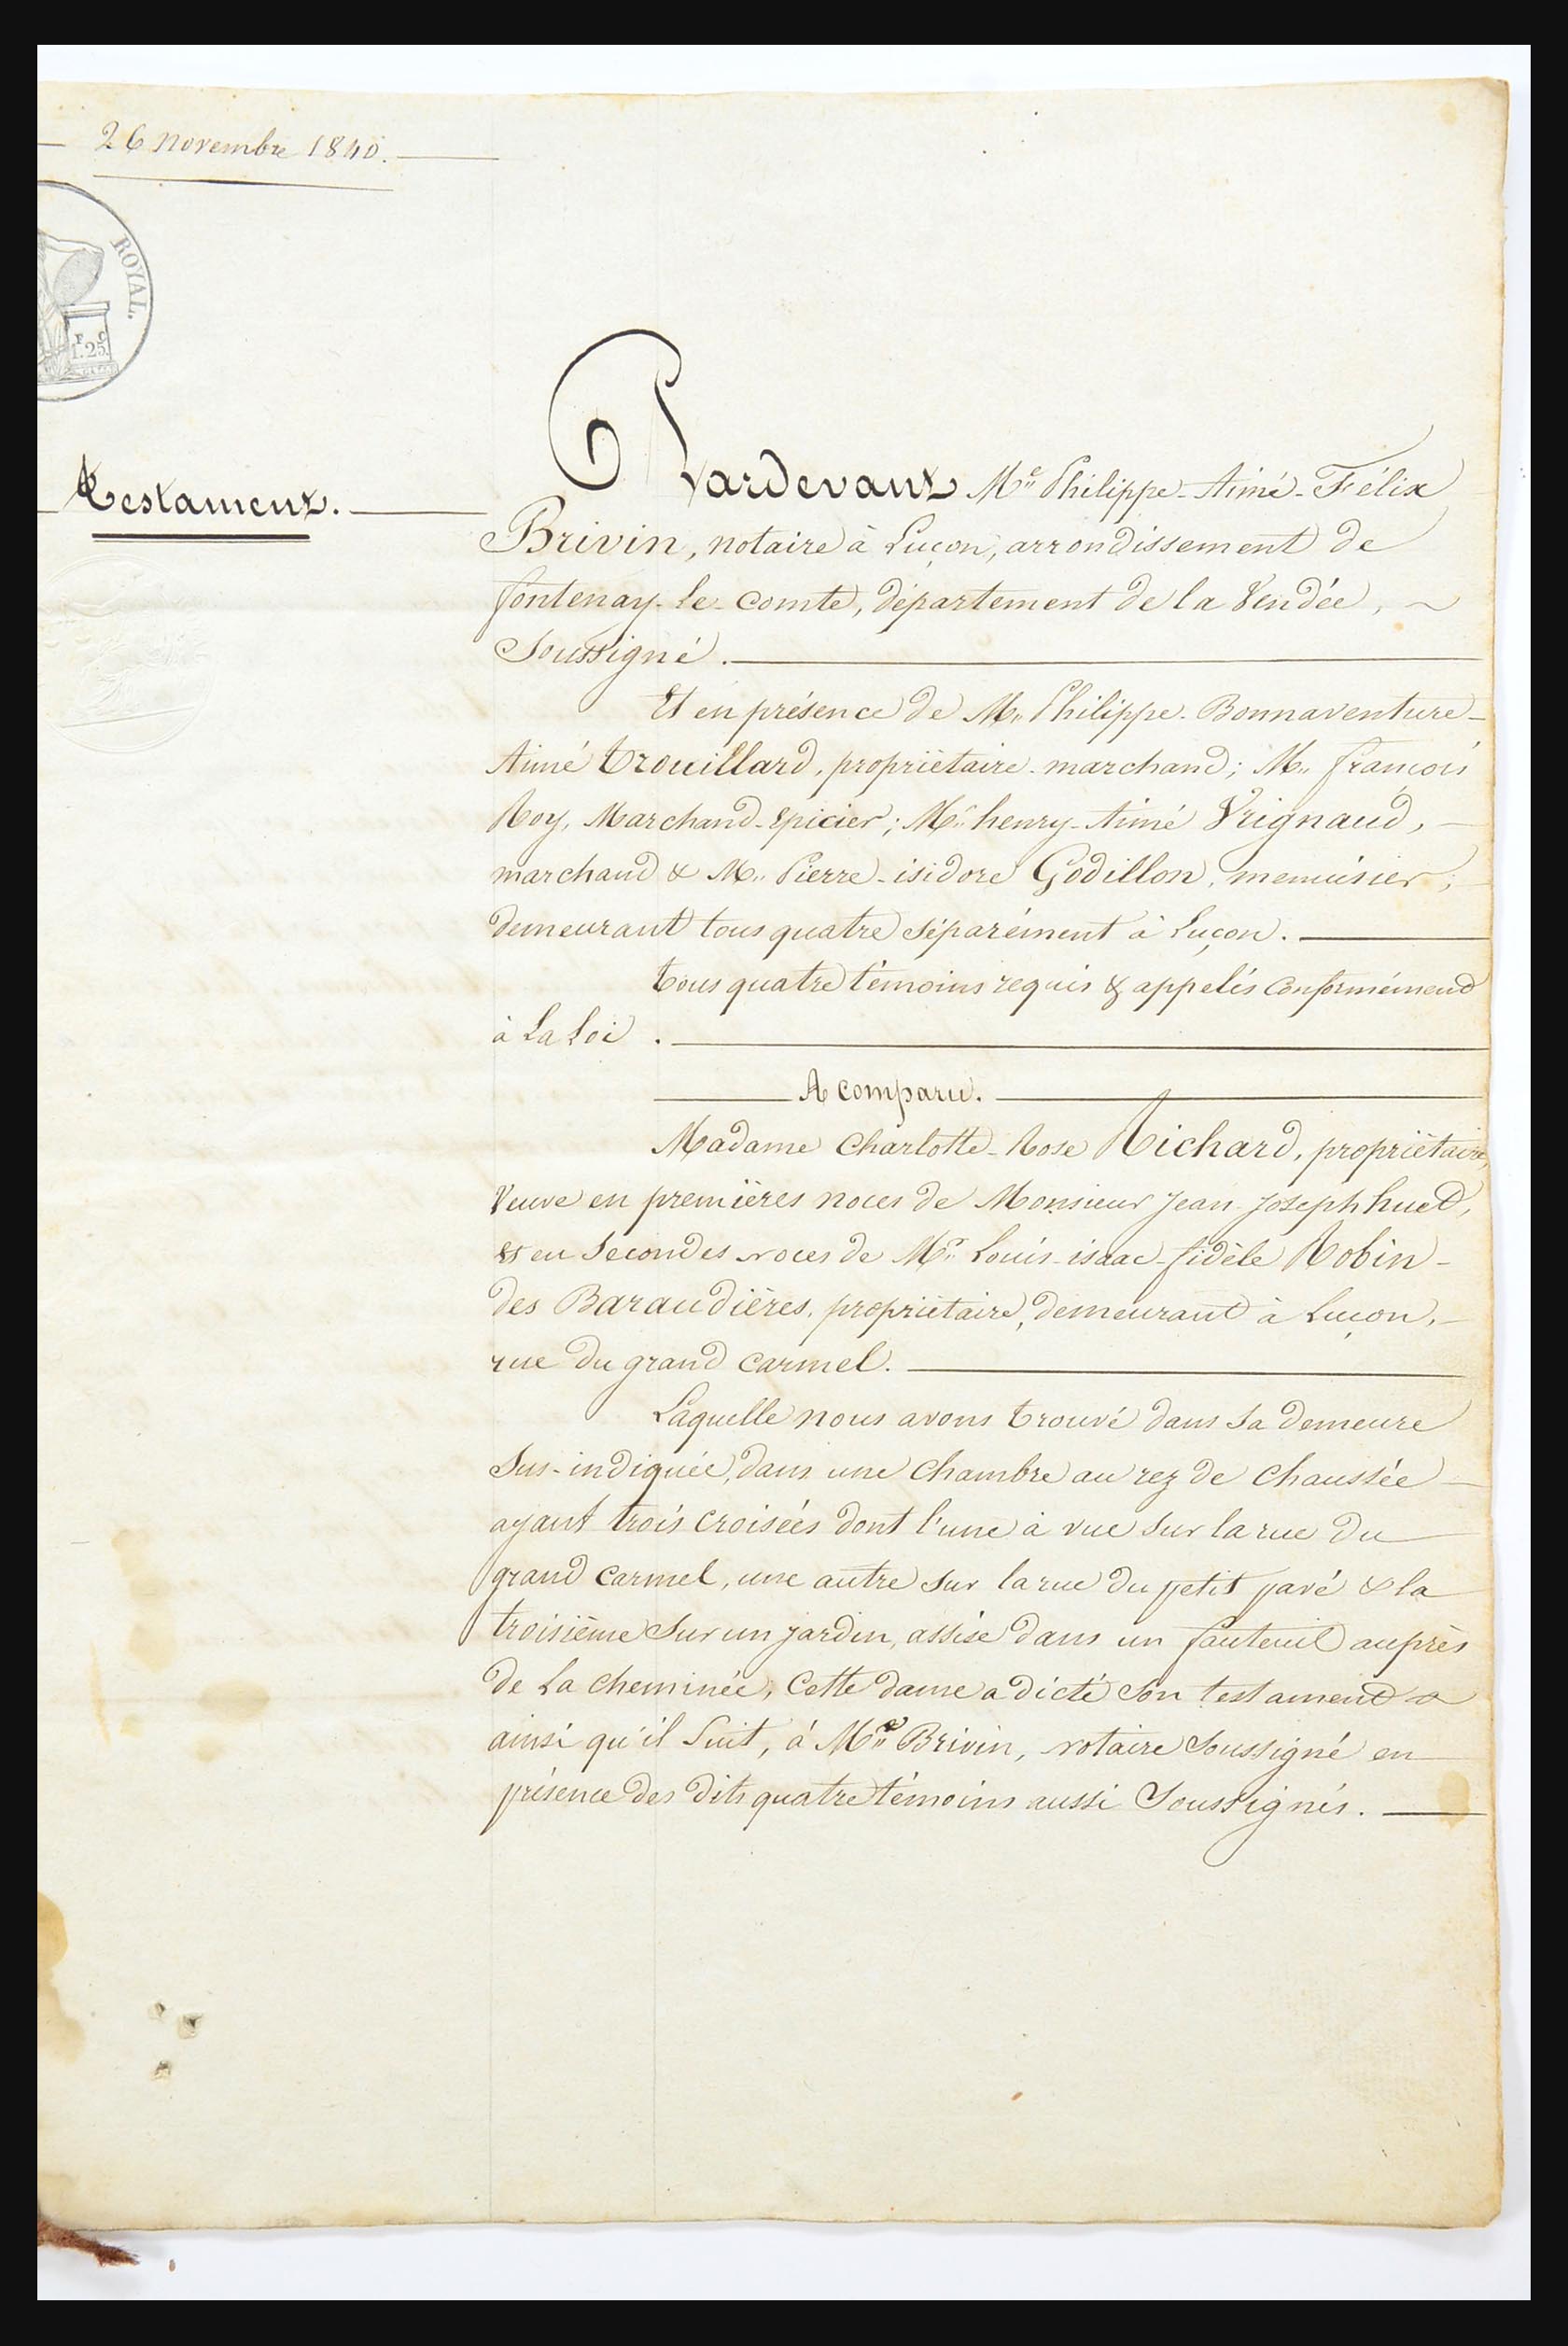 26 novembre 1840.
ROYAL.
F C
1.25
Testament.
Pardevant Me Philippe-Aimé-Félix
Brivin, notaire à Luçon, arrondissement de
fontenay-le-comte, département de la Vendée,
Soussigné.
Et en présence de Mr Philippe-Bonnaventure-
Aimé trouillard, propriétaire-marchand; Mr françois
Roy, Marchand-Epicier; Mr henry-Aimé Vrignaud,
marchand & Mr Pierre-isidore Godillon, menuisier;
demeurant tous quatre séparément à Luçon.
tous quatre témoins requis & appelés conformément
à La Loi.
A comparu.
Madame Charlotte-Rose Richard, propriétaire,
Veuve en premières noces de Monsieur Jean-Joseph huet,
et en Secondes noces de Mr Louis-isaac-fidèle Robin-
des Baraudières, propriétaire, demeurant à Luçon,
rue du grand carmel.
Laquelle nous avons trouvé dans sa demeure
Sus-indiquée, dans une chambre au rez de chaussée
ayant trois croisées dont l'une à vue sur la rue du
grand carmel, une autre sur la rue du petit pavé & la
troisième sur un jardin, assise dans un fauteuil auprès
de La cheminée, Cette dame a dicté son testament
ainsi qu'il suit, à Me Brivin, notaire soussigné en
présence des dits quatre témoins aussi Soussignés.